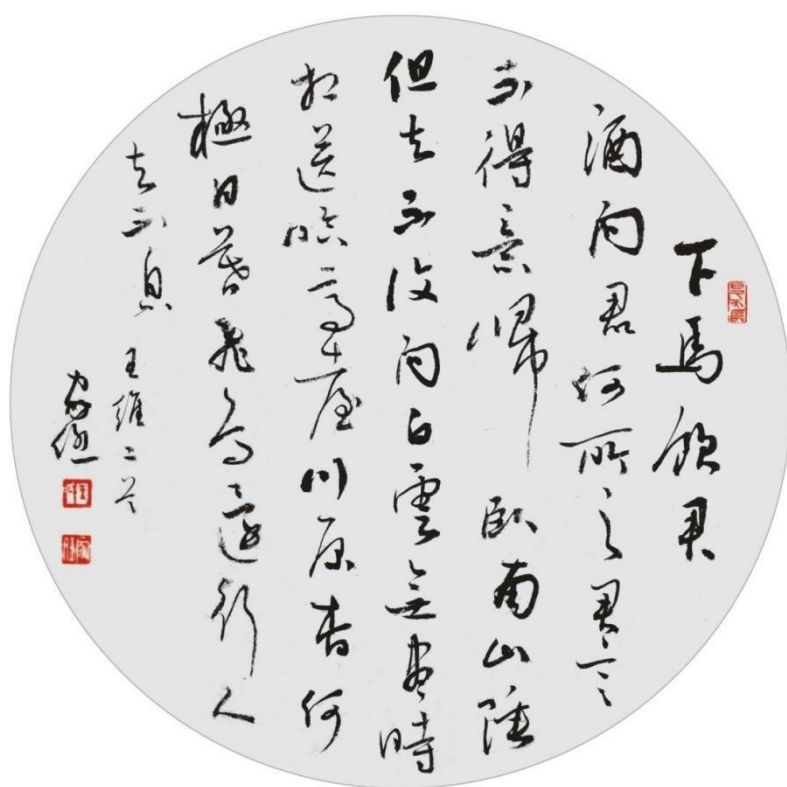 下馬飲君
酒問君何所之君言
不得意歸臥南山陲
但去不復問白雲無盡時
相送臨高臺川原杳何
極日暮飛鳥還行人
去不息 王維二首